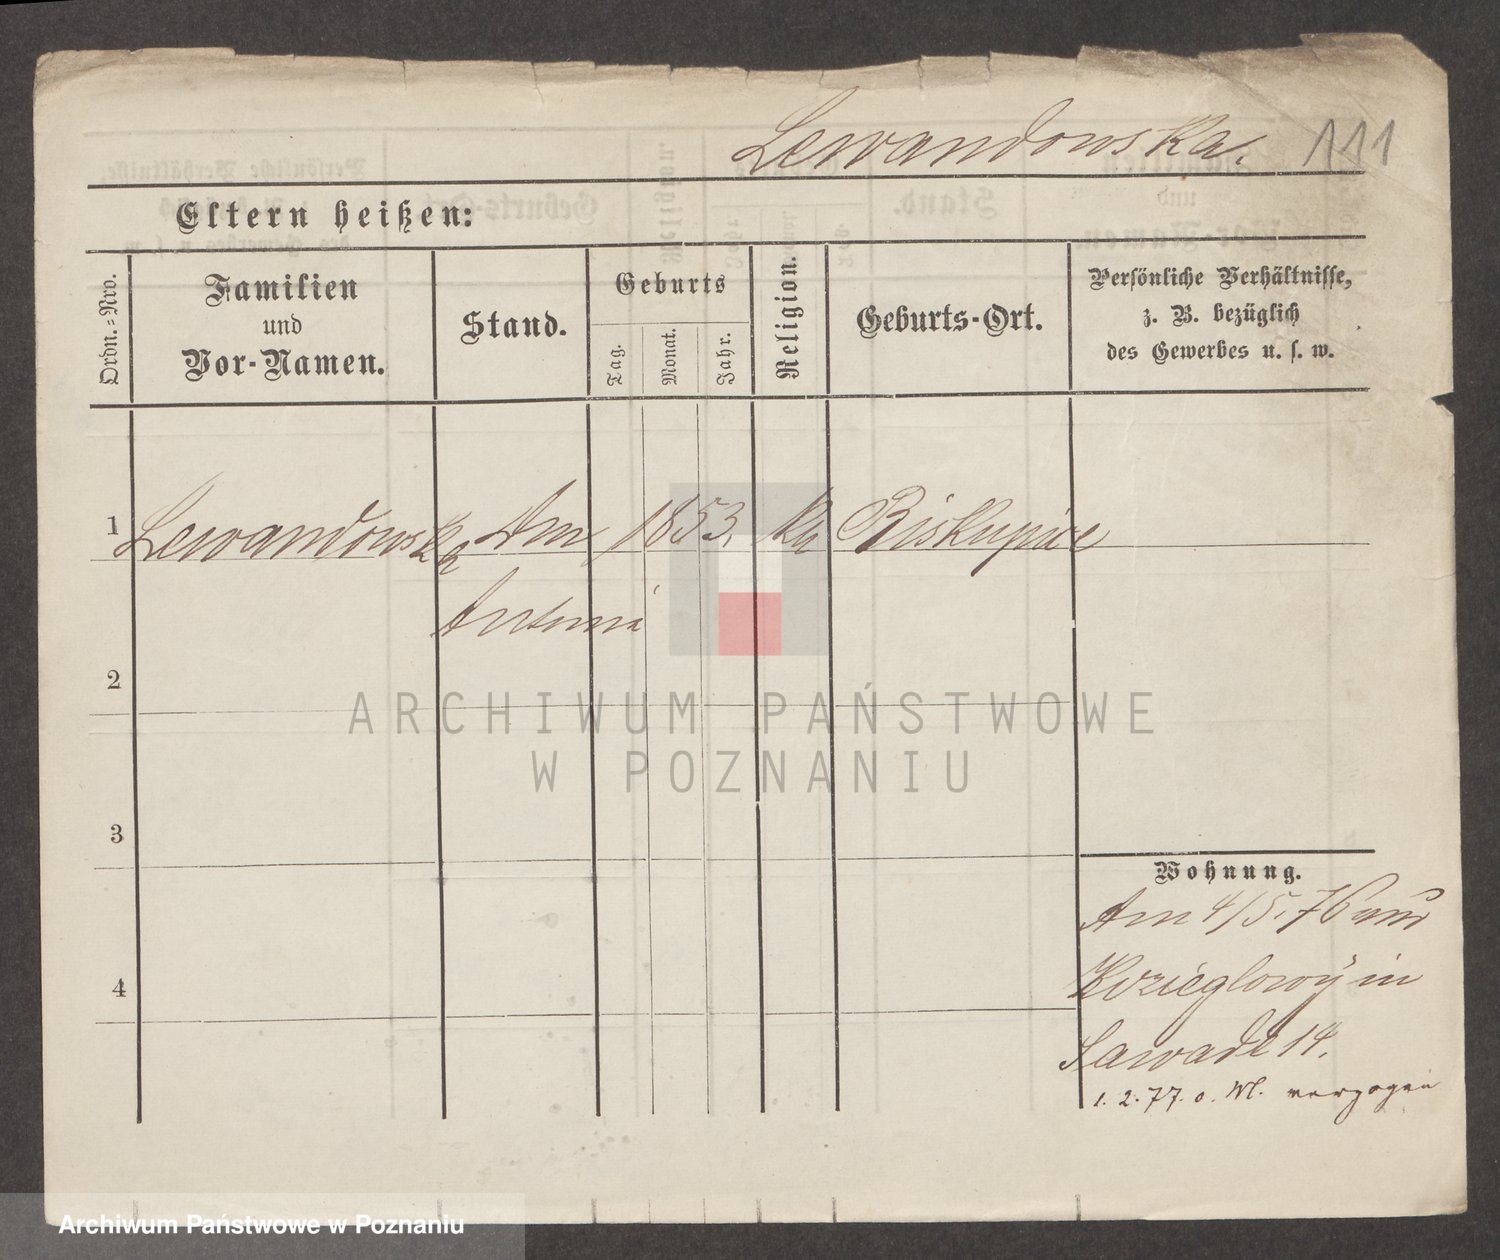 Lewandowska. 111
Eltern heißen:
Ordn.=Nro.
Familien
und
Vor-Namen.
Stand.
Geburts
Tag.
Monat.
Jahr.
Religion.
Geburts-Ort.
Persönliche Verhältnisse,
z. B. bezüglich
des Gewerbes u. s. w.
1 Lewandowska Dm 1853. kh Biskupice
Antoni
2
3
4
Wohnung.
Am 4/5. 76 aus
Kozieglowy in
Sawade 14.
1. 2. 77. o. Wl. verzogen
ARCHIWUM PAŃSTWOWE
W POZNANIU
Archiwum Państwowe w Poznaniu